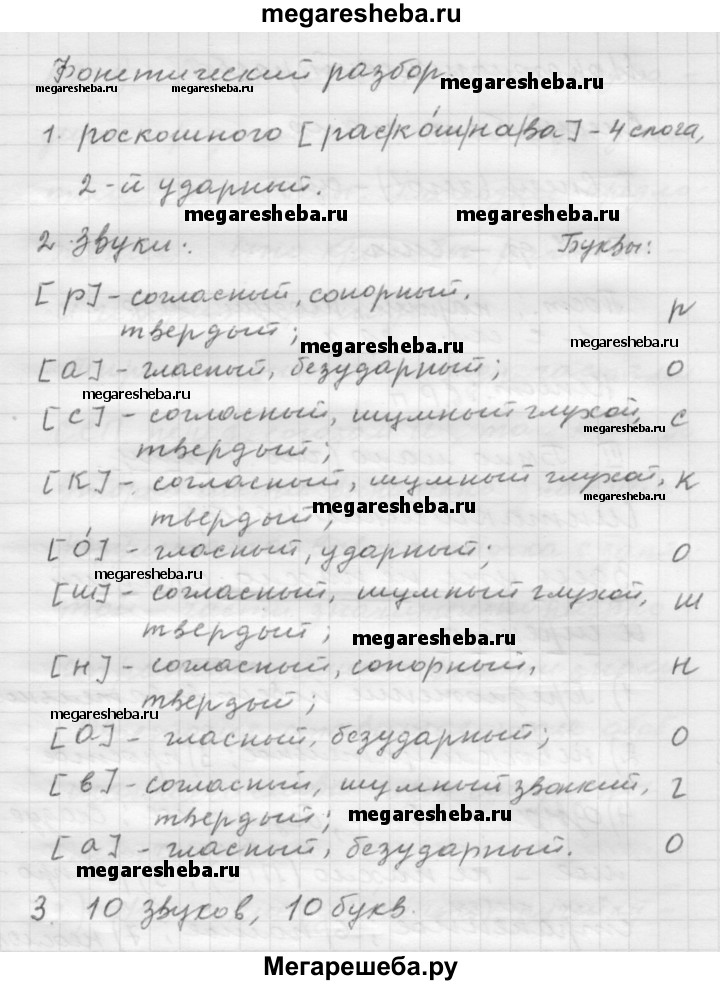 megaresheba.ru
Фонетический разбор.
megaresheba.ru megaresheba.ru megaresheba.ru
1. роскошного [рас/ко́ш/на/ва] - 4 слога,
2-й ударный.
megaresheba.ru megaresheba.ru
2. Звуки: Буквы:
[р] - согласный, сонорный,
твердый; р
megaresheba.ru megaresheba.ru
[а] - гласный, безударный; о
megaresheba.ru
[с] - согласный, шумный глухой, с
megaresheba.ru
твердый;
[к] - согласный, шумный глухой, к
megaresheba.ru
твердый;
megaresheba.ru
[о́] - гласный, ударный; о
megaresheba.ru
[ш] - согласный, шумный глухой, ш
твердый;
megaresheba.ru
[н] - согласный, сонорный, н
твердый;
megaresheba.ru
[а] - гласный, безударный; о
[в] - согласный, шумный звонкий, г
твердый;
megaresheba.ru
[а] - гласный, безударный. о
megaresheba.ru
3. 10 звуков, 10 букв.
Мегарешеба.ру